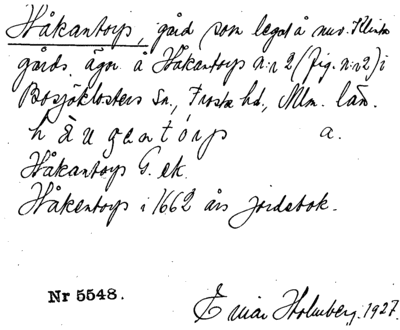 Håkantorp, gård som legat å nuv. Klinta
gårds ägor å Håkantorps n:r 2 (fig. n:r 2) i
Bosjöklosters Sn., Frosta hd, Mlm. län.
håugentórp a.
Håkantorp G. ek.
Håkentorp i 1662 års jordebok.
Nr 5548.
Einar Holmberg. 1927.